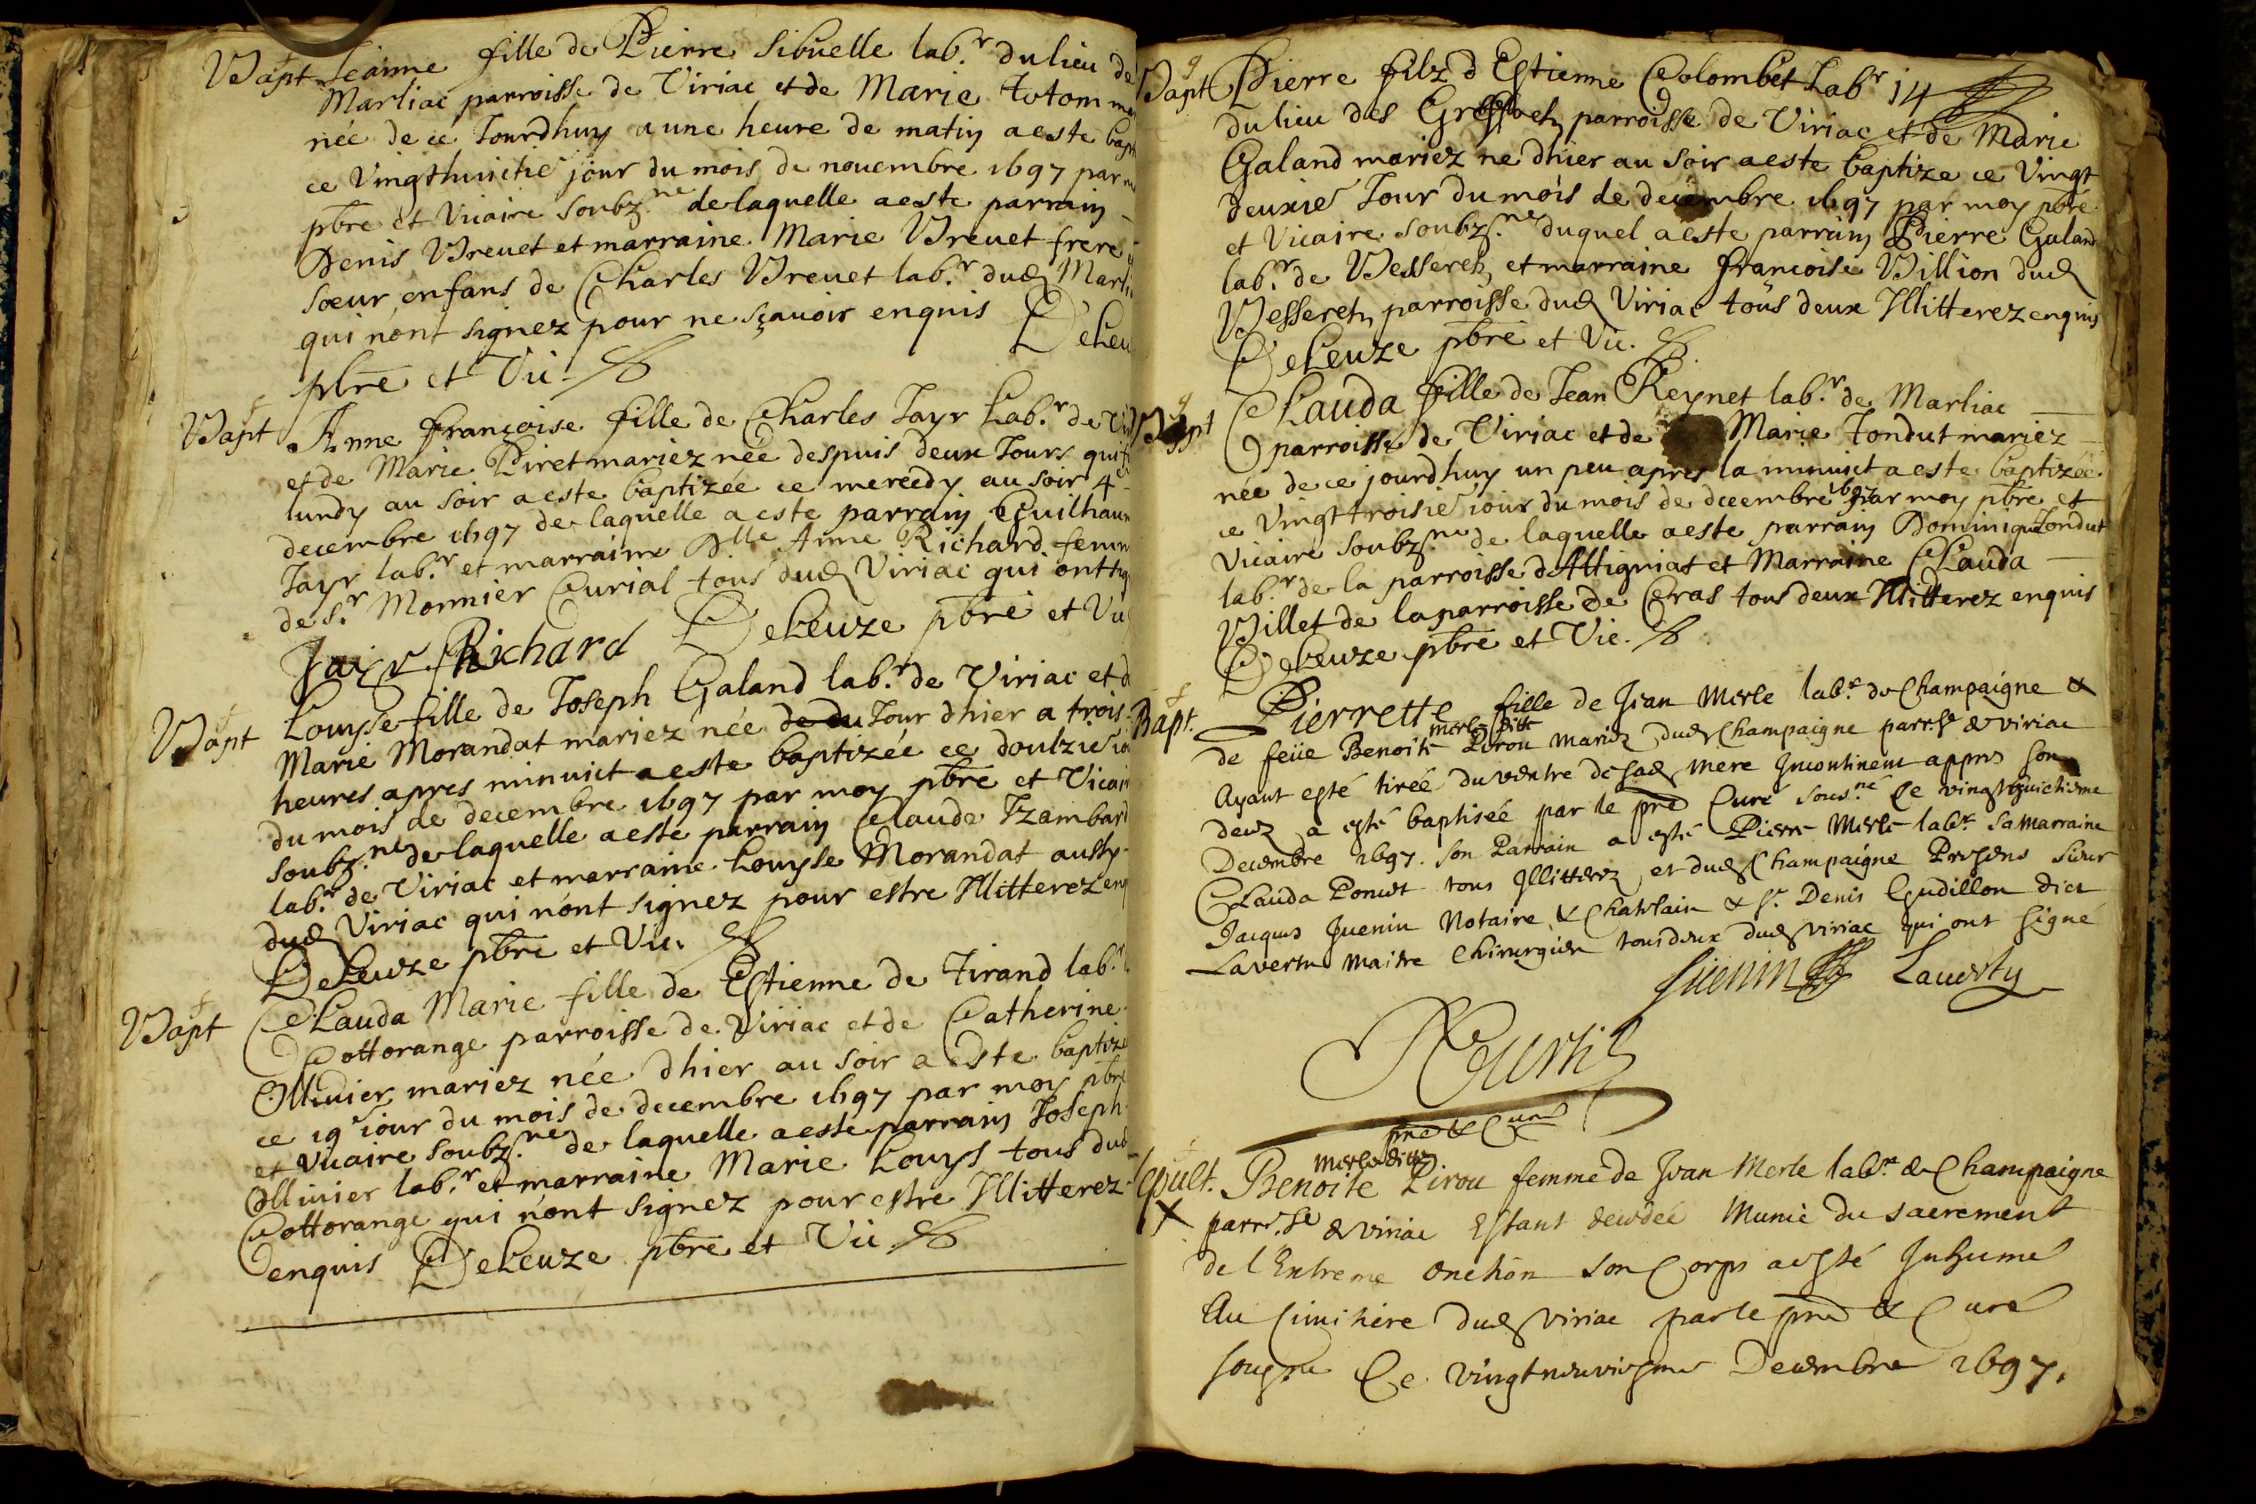 Bapt Jeanne fille de Pierre Sibuelle lab.r du lieu de
Marliac parroisse de Viriac et de Marie Totom
née de ce Jourdhuy a une heure de matin a este
ce Vingthuictie jour du mois de nouembre 1697 par
pbre et Vicaire soubz.ne de laquelle a este parrain
Denis Breuet et marraine Marie Breuet frere
sœur enfans de Charles Breuet lab.r dud
qui nont signez pour ne sçauoir enquis
pbre et Vic.
Bapt Anne françoise fille de Charles Jayr Lab.r de
et de Marie Piret mariez née despuis deux Jours qui
lundy au soir a este baptizée ce mercedy au soir 4
decembre 1697 de laquelle a este parrain Guilhaume
Jayr lab.r et marraine Dlle Anne Richard femme
de S.r Monnier Curial tous dud Viriac qui ont
Jair Richard DeLeuze pbre et
Bapt Louyse fille de Joseph Galand lab.r de Viriac et
Marie Morandat mariez née de du Jour dhier a trois
heures apres minuict a este baptizée ce doulzie
du mois de decembre 1697 par moy pbre et Vicaire
soubz.ne de laquelle a este parrain Claude
lab.r de Viriac et marraine Louyse Morandat aussy
dud Viriac qui nont signez pour estre Illitterez
DeLeuze pbre et Vic.
Bapt Clauda Marie fille de Estienne de Tirand lab.r
Cottorange parroisse de Viriac et de Catherine
Ollivier mariez née dhier au soir a este baptizée
ce 19e iour du mois de decembre 1697 par moy pbre
et Vicaire soubz.ne de laquelle a este parrain Joseph
Ollivier lab.r et marraine Marie Louys tous dud
Cottorange qui nont signez pour estre Illitterez
enquis DeLeuze pbre et Vic
Bapt Pierre filz d Estienne Colombet Lab.r 14
du lieu des parroisse de Viriac et de Marie
Galand mariez ne dhier au soir a este baptize ce Vingt
deuxie Jour du mois de decembre 1697 par moy pbre
et Vicaire soubz.ne duquel a este parrain Pierre Galand
lab.r de Vesseretz et marraine francoise Billion dud
Vesseretz parroisse dud Viriac tous deux Illitterez enquis
DeLeuze pbre et Vic.
Bapt Clauda fille de Jean Reynet lab.r de Marliac
parroisse de Viriac et de Marie Tondut mariez
née de ce jourdhuy un peu apres la minuict a este baptizée
ce Vingt troisie iour du mois de decembre 1697 par moy pbre et
Vicaire soubz.ne de laquelle a este parrain Dominique Tondut
lab.r de la parroisse d'Attignat et Marraine Clauda
Billet de la parroisse de Cras tous deux Illitterez enquis
DeLeuze pbre et Vic.
Bapt. Pierrette fille de Jean Merle lab.r de Champaigne &
merle ditte
de feüe Benoite Pirou mariez dud Champaigne parr.se de viriac
Ayant esté tireé du ventre de sad mere Incontinent appres son
decez a esté baptiseé par le pre Curé sous.né Ce vingthuictieme
Decembre 1697. Son Parrain a esté Pierre Merle lab.r Sa marraine
Clauda Poncet tous Illitterez et dud Champaigne Presens sieur
Jacques Guenin Notaire & Chatelain & S.r Denis Gudillon dict
Lavertu Maitre Chirurgien tous deux dud viriac qui ont signé
Guenin Laverty
pre & Curé
Sepult. merle ditte
Benoite Pirou femme de Jean Merle lab.r de Champaigne
X parr.se de viriac Estant decedeé Munie du sacrement
de l'Extreme onction Son Corps a esté Inhumé
Au Cimitiere dud viriac par le pre & Curé
sousne Ce vingtneuviesme Decembre 1697.